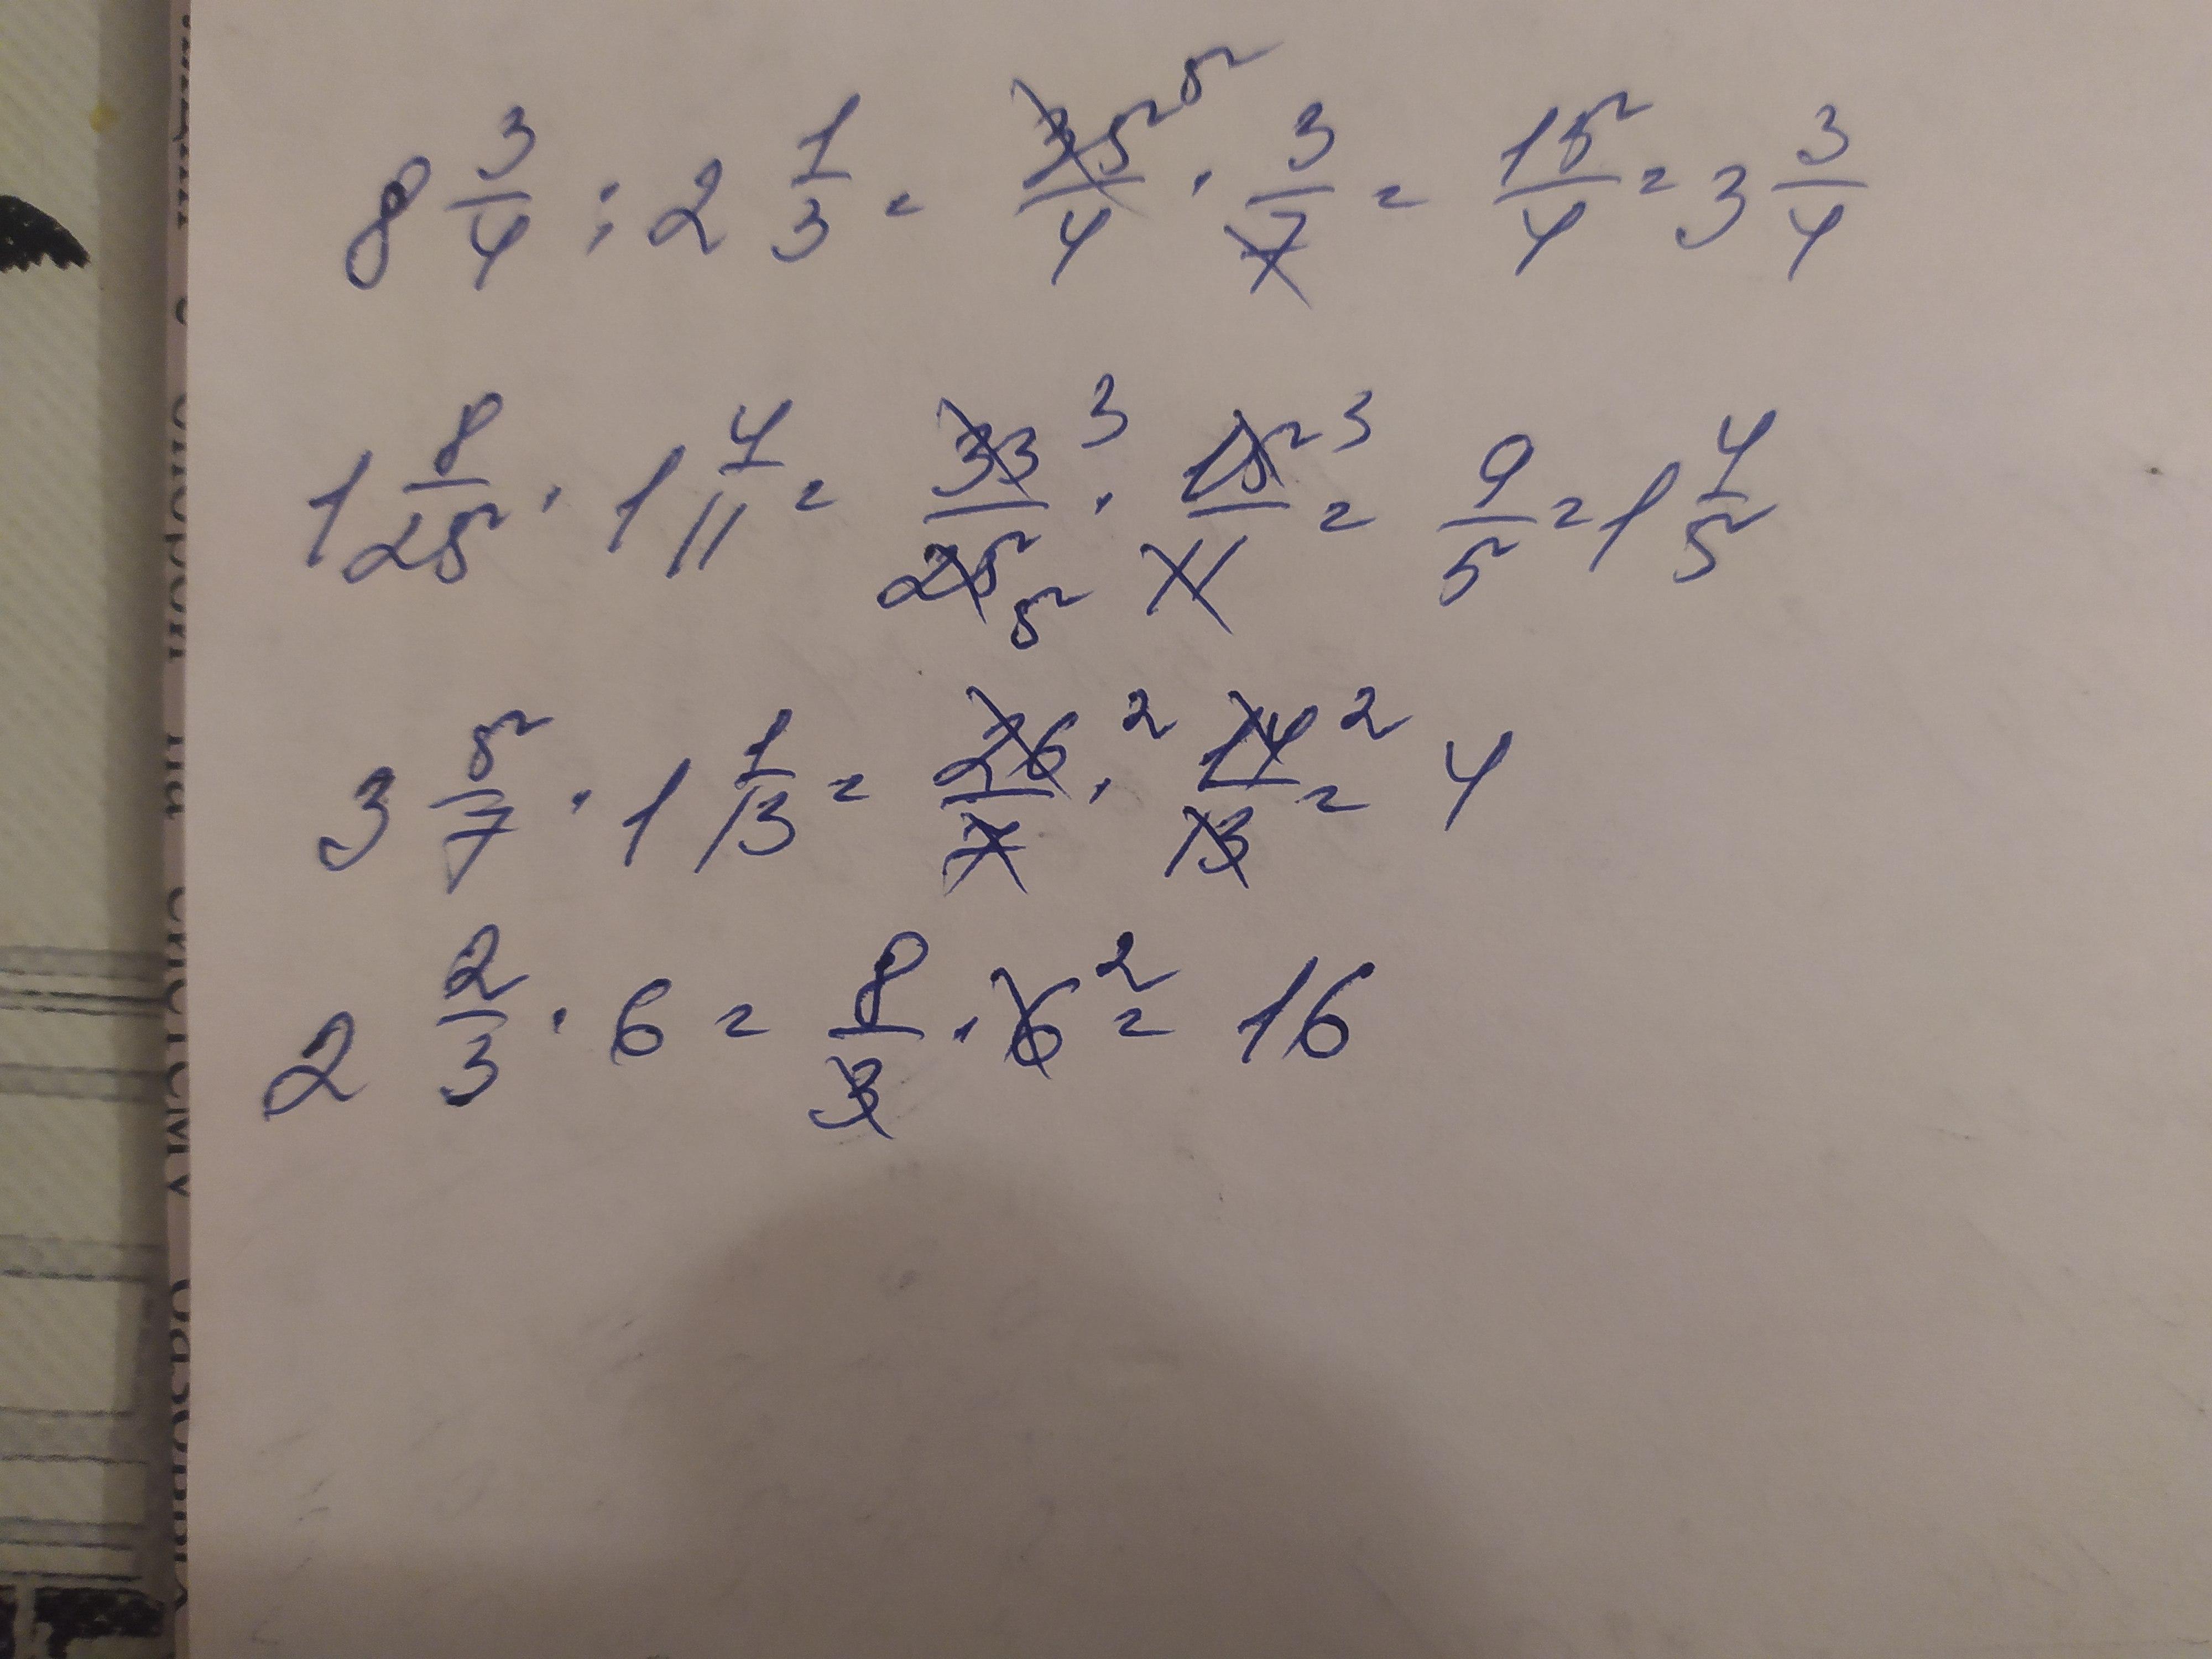 8 3/4 : 2 1/3 = 35/4 5 · 3/7 = 15/4 = 3 3/4
1 8/25 · 1 4/11 = 33/25 3 5 · 15/11 3 = 9/5 = 1 4/5
3 5/7 · 1 1/13 = 26/7 2 · 14/13 2 = 4
2 2/3 · 6 = 8/3 · 6 2 = 16